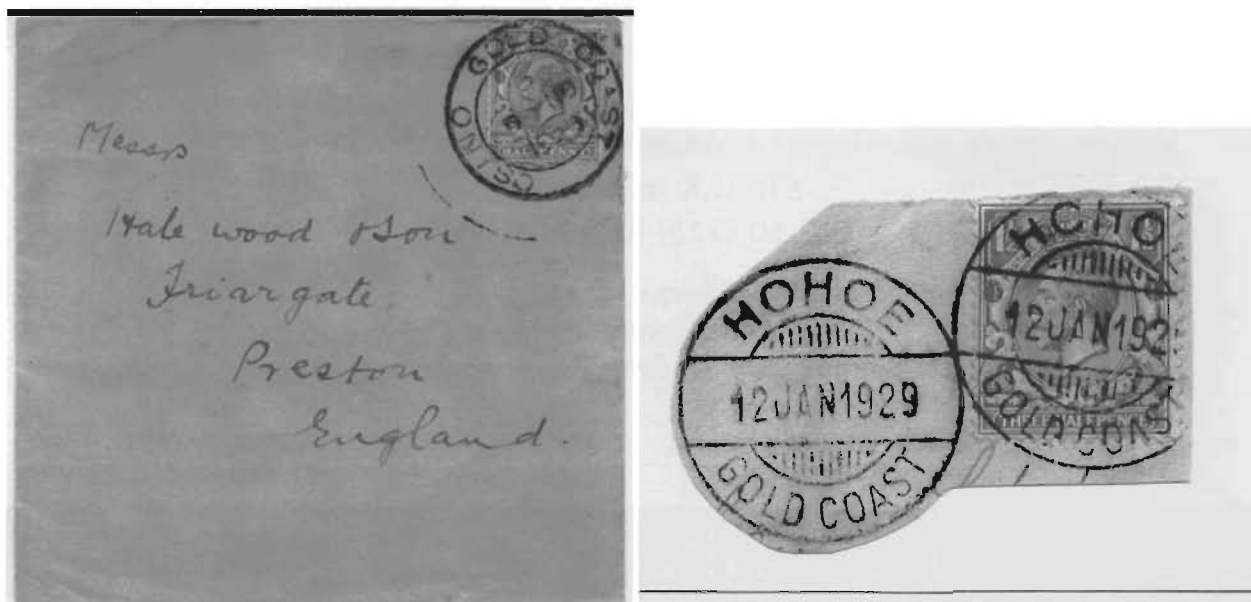 GOLD COAST
OSINO
Messrs
Halewood & Son
Friargate.
Preston
England.
HOHOE
12JAN1929
GOLD COAST
HOHO
12JAN192
GOLD COAST